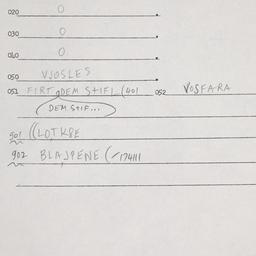 020 O
030 O
040 O
050 VJOSLES
051 FIRT DEM STIFL (401 052 VOSFARA
DEM STIF...
901 ((LOTKBE
902 BLAJPENE (174111